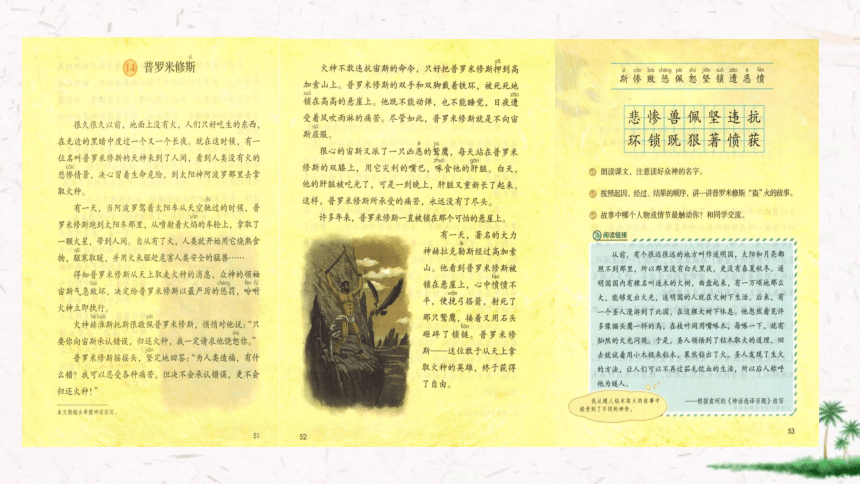 14 普罗米修斯
很久很久以前，地面上没有火，人们只好吃生的东西，
在无边的黑暗中度过一个又一个长夜。就在这时候，有一
位名叫普罗米修斯的天神来到了人间，看到人类没有火的
悲惨情景，决心冒着生命危险，到太阳神阿波罗那里去拿
取火种。
有一天，当阿波罗驾着太阳车从天空驰过的时候，普
罗米修斯跑到太阳车那里，从喷射着火焰的车轮上，拿取了
一颗火星，带到人间。自从有了火，人类就开始用它烧熟食
物，驱寒取暖，并用火来驱赶危害人类安全的猛兽……
得知普罗米修斯从天上取走火种的消息，众神的领袖
宙斯气急败坏，决定给普罗米修斯以最严厉的惩罚，吩咐
火神立即执行。
火神赫淮斯托斯很敬佩普罗米修斯，悄悄对他说：“只
要你向宙斯承认错误，归还火种，我一定请求他饶恕你。”
普罗米修斯摇摇头，坚定地回答：“为人类造福，有什
么错？我可以忍受各种痛苦，但决不会承认错误，更不会
归还火种！”
本文根据古希腊神话改写。
51
火神不敢违抗宙斯的命令，只好把普罗米修斯押到高
加索山上。普罗米修斯的双手和双脚戴着铁环，被死死地
锁在高高的悬崖上。他既不能动弹，也不能睡觉，日夜遭
受着风吹雨淋的痛苦。尽管如此，普罗米修斯就是不向宙
斯屈服。
狠心的宙斯又派了一只凶恶的鹫鹰，每天站在普罗米
修斯的双膝上，用它尖利的嘴巴，啄食他的肝脏。白天，
他的肝脏被吃光了，可是一到晚上，肝脏又重新长了起来。
这样，普罗米修斯所承受的痛苦，永远没有了尽头。
许多年来，普罗米修斯一直被锁在那个可怕的悬崖上。
有一天，著名的大力
神赫拉克勒斯经过高加索
山。他看到普罗米修斯被
锁在悬崖上，心中愤愤不
平，便挽弓搭箭，射死了
那只鹫鹰，接着又用石头
砸碎了锁链。普罗米修
斯——这位敢于从天上拿
取火种的英雄，终于获得
了自由。
52
sī cǎn bài chéng pèi shù jiān suǒ zāo è fèn
斯 惨 败 惩 佩 恕 坚 锁 遭 恶 愤
悲 惨 兽 佩 坚 违 抗
环 锁 既 狠 著 愤 获
朗读课文，注意读好众神的名字。
按照起因、经过、结果的顺序，讲一讲普罗米修斯“盗”火的故事。
故事中哪个人物或情节最触动你？和同学交流。
阅读链接
从前，有个很远很远的地方叫作遂明国，太阳和月亮都
照不到那里，所以那里没有白天黑夜，更没有春夏秋冬。遂
明国国内有棵名叫遂木的大树，曲盘起来，有一万顷地那么
大，能够发出火光，遂明国的人就在大树下生活。后来，有
一个圣人漫游到了此国，在这棵大树下休息。他忽然看见许
多像猫头鹰一样的鸟，在枝叶间用嘴啄木，每啄一下，就有
灿然的火光闪现。于是，圣人领悟到了钻木取火的道理，回
去就试着用小木棍来钻木，果然钻出了火。圣人发现了生火
的方法，让人们可以不再过茹毛饮血的生活，所以后人称呼
他为燧人。
——根据袁珂的《神话选译百题》改写
我从燧人钻木取火的故事中
感受到了不同的神奇。
53